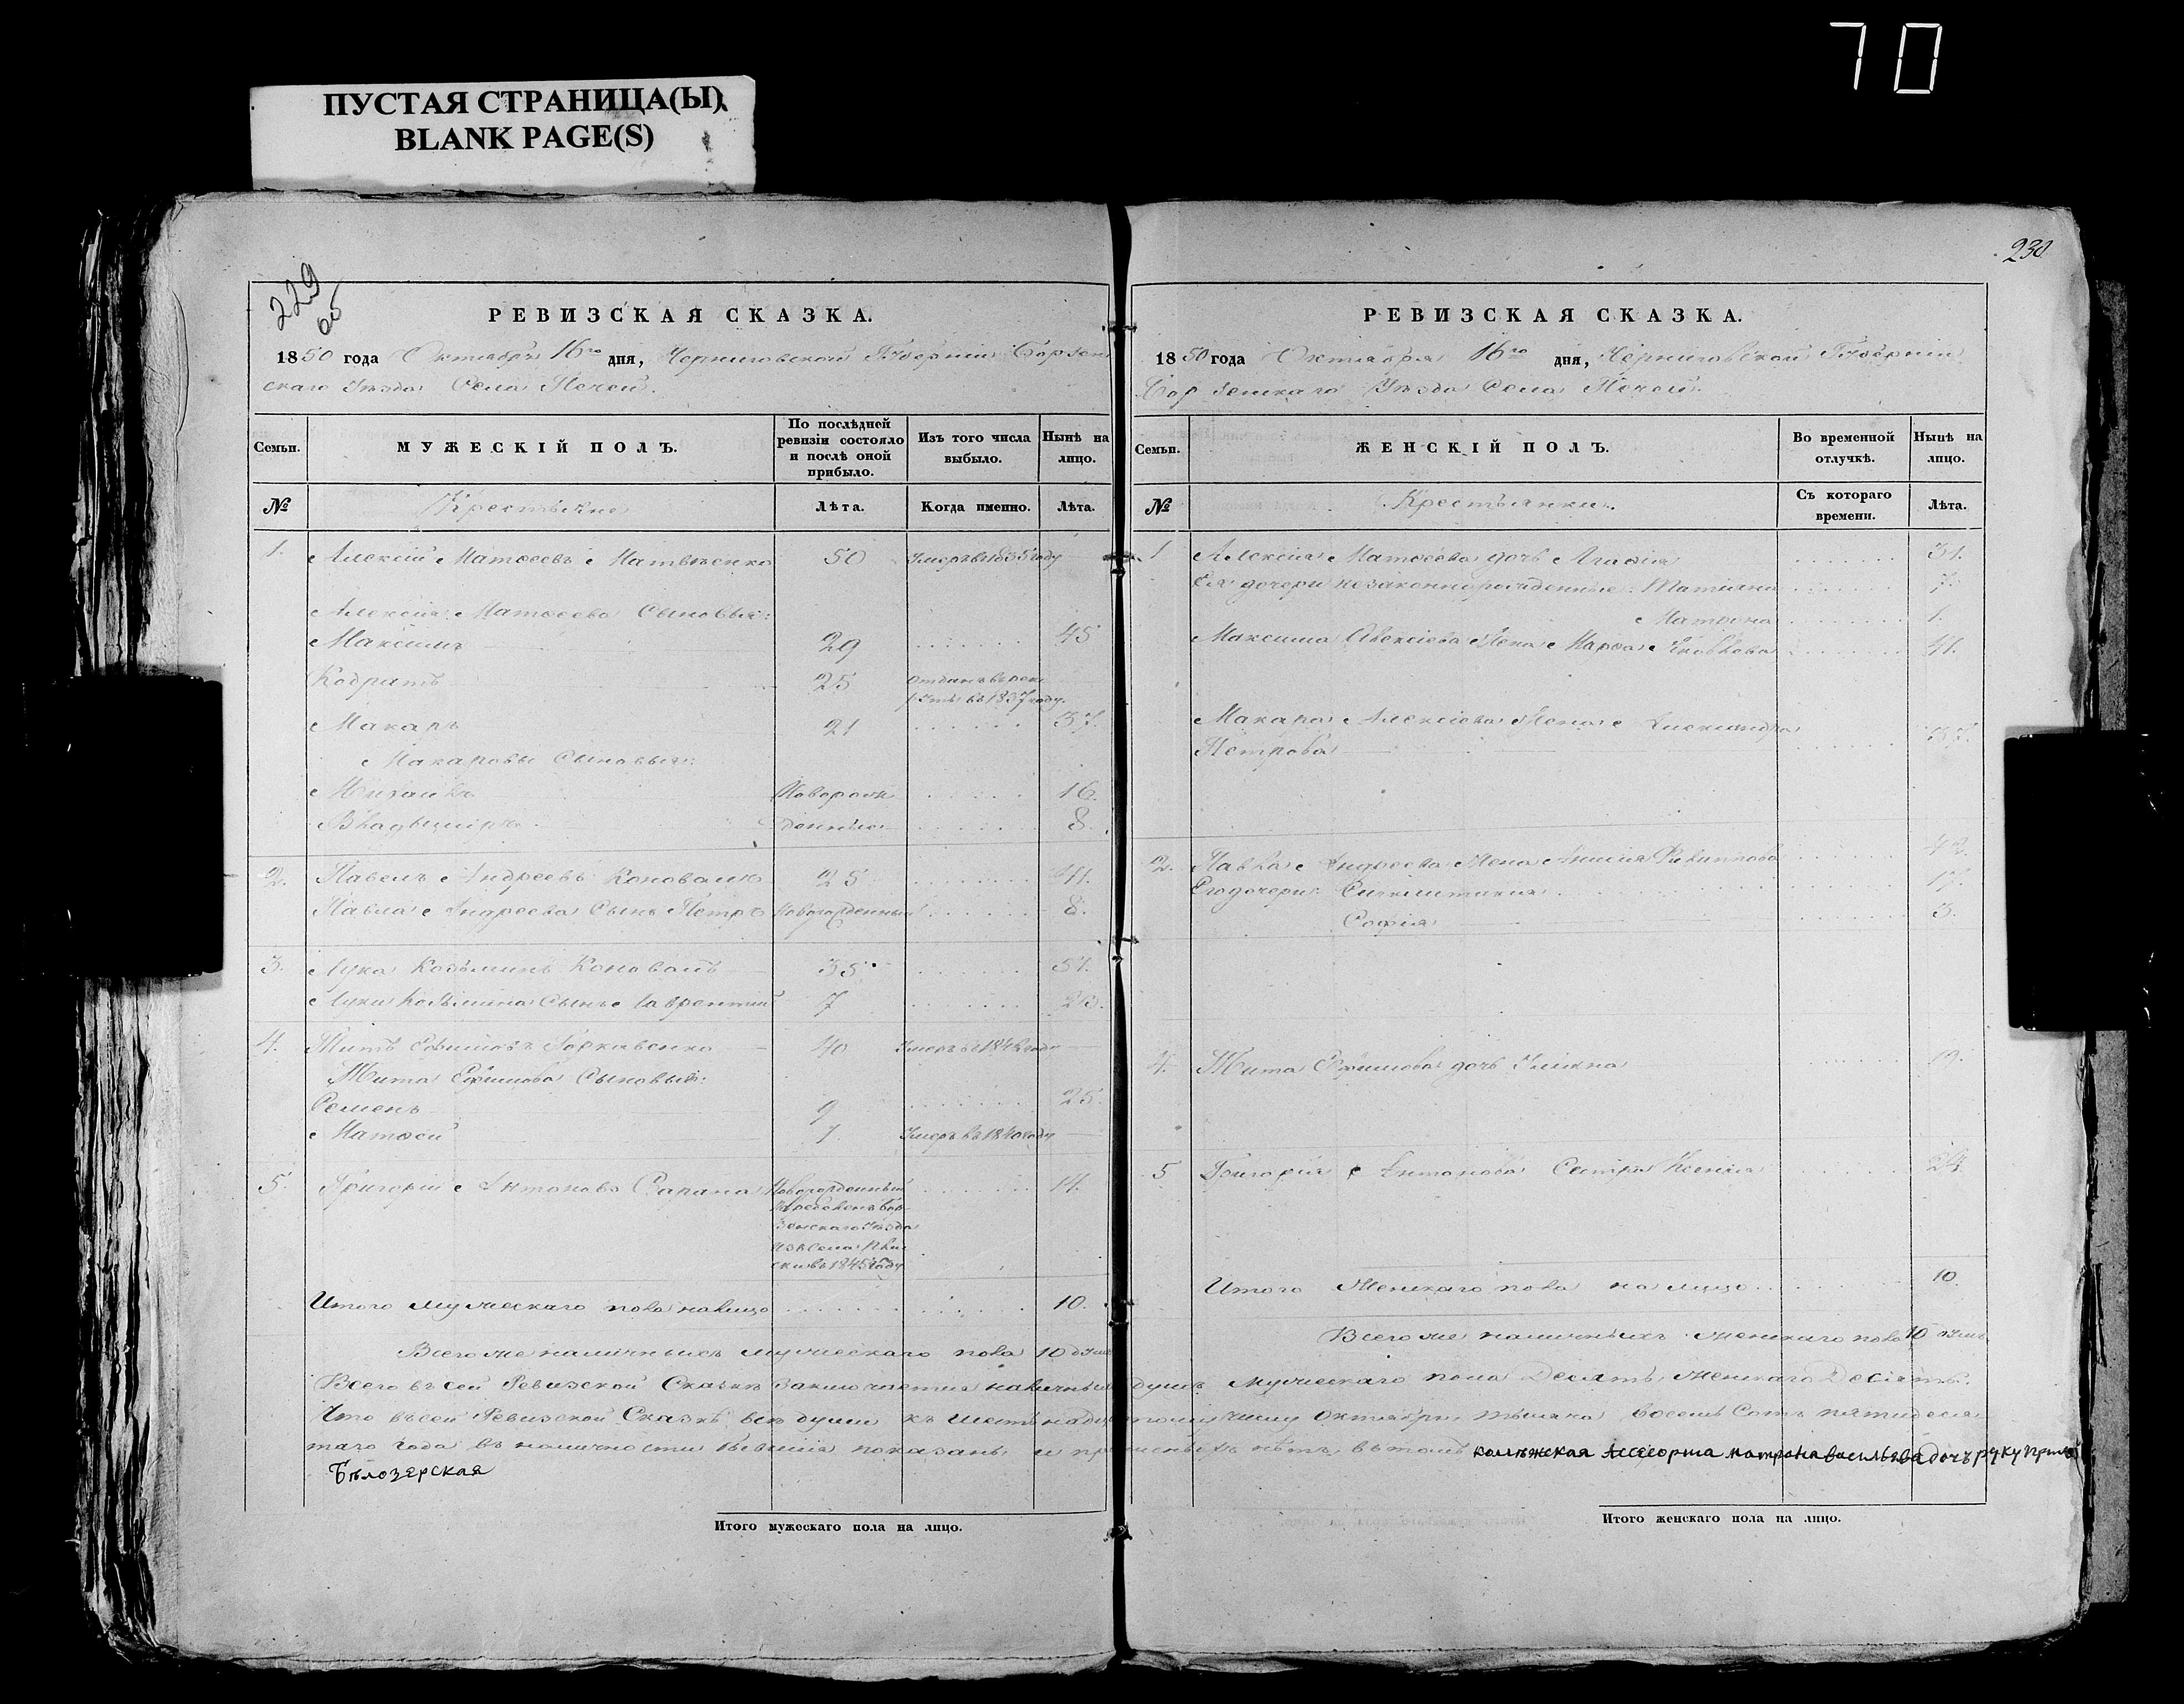 70
ПУСТАЯ СТРАНИЦА(Ы)
BLANK PAGE(S)
229
65
РЕВИЗСКАЯ СКАЗКА.
1850 года Октября 16го дня, Черниговской Губерніи Борзен
скаго Уѣзда Села Печей.
Семьи.
МУЖЕСКІЙ ПОЛЪ.
По послѣдней ревизіи состояло и послѣ оной прибыло.
Изъ того числа выбыло.
Нынѣ на лицо.
№ Крестьяне Лѣта. Когда именно. Лѣта.
1. Алексій Матѳеевъ Матвѣенко 50 Умеръ въ 1835 году
Алексія Матѳеева Сыновья:
Максимъ 29 45
Кодратъ 25 отданъ въ рек
руты въ 1837 году.
Макаръ 21 37.
Макаровы Сыновья:
Михаилъ Новорож 16.
Владыміръ денные 8.
2. Павелъ Андреевъ Коновалъ 25 41.
Павла Андреева Сынъ Петръ Новорожденный 8.
3. Лука Козьминъ Коновалъ 35 51.
Луки Козьмина Сынъ Лаврентій 7 23.
4. Титъ Ефимовъ Горкавенко 40 Умеръ въ 1848 году
Тита Ефимова Сыновья:
Семенъ 9 25.
Матѳей 7 Умеръ въ 1840 году
5. Григорій Антоновъ Сапана Новорожденный 14.
Борзенскаго Уѣзда
изъ Села
въ 1845 году
Итого мужескаго пола налицо 10.
Всего же наличныхъ мужескаго пола 10 душъ
230
РЕВИЗСКАЯ СКАЗКА.
1850 года Октября 16го дня, Черниговской Губерніи
Борзенскаго Уѣзда Села Печей.
Семьи.
ЖЕНСКІЙ ПОЛЪ.
Во временной отлучкѣ.
Нынѣ на лицо.
№ Крестьянки. Съ котораго времени. Лѣта.
1 Алексія Матѳеева дочь Агафія 31.
Ея дочери незаконнорожденные: Татіана 7.
Матрона 1.
Максима Алексіева Жена Марѳа Яковлева 41.
Макара Алексіева Жена Александра
Петрова 37.
2. Павла Андреева Жена Анисія Филиппова 42.
Его дочери: Синклитикія 17.
Софія 3.
4. Тита Ефимова дочь Уліяна 19.
5 Григорія Антонова Сестра Ксенія 24.
Итого Женскаго пола на лицо 10.
Всего же наличныхъ женскаго пола 10 душъ
Всего въ сей Ревизской Сказкѣ Заключается наличныхъ душъ мужескаго пола Десять, женскаго Десять.
Что въ сей Ревизской Сказкѣ всѣ души къ шестнадцатому числу Октября мѣсяца восемь Сотъ пятидеся
таго года въ наличности бывшія показаны, и нѣтъ, въ томъ колѣжская Асесорша матрона васильева дочъ руку прило
Бѣлозерская
Итого мужескаго пола на лицо.
Итого женскаго пола на лицо.